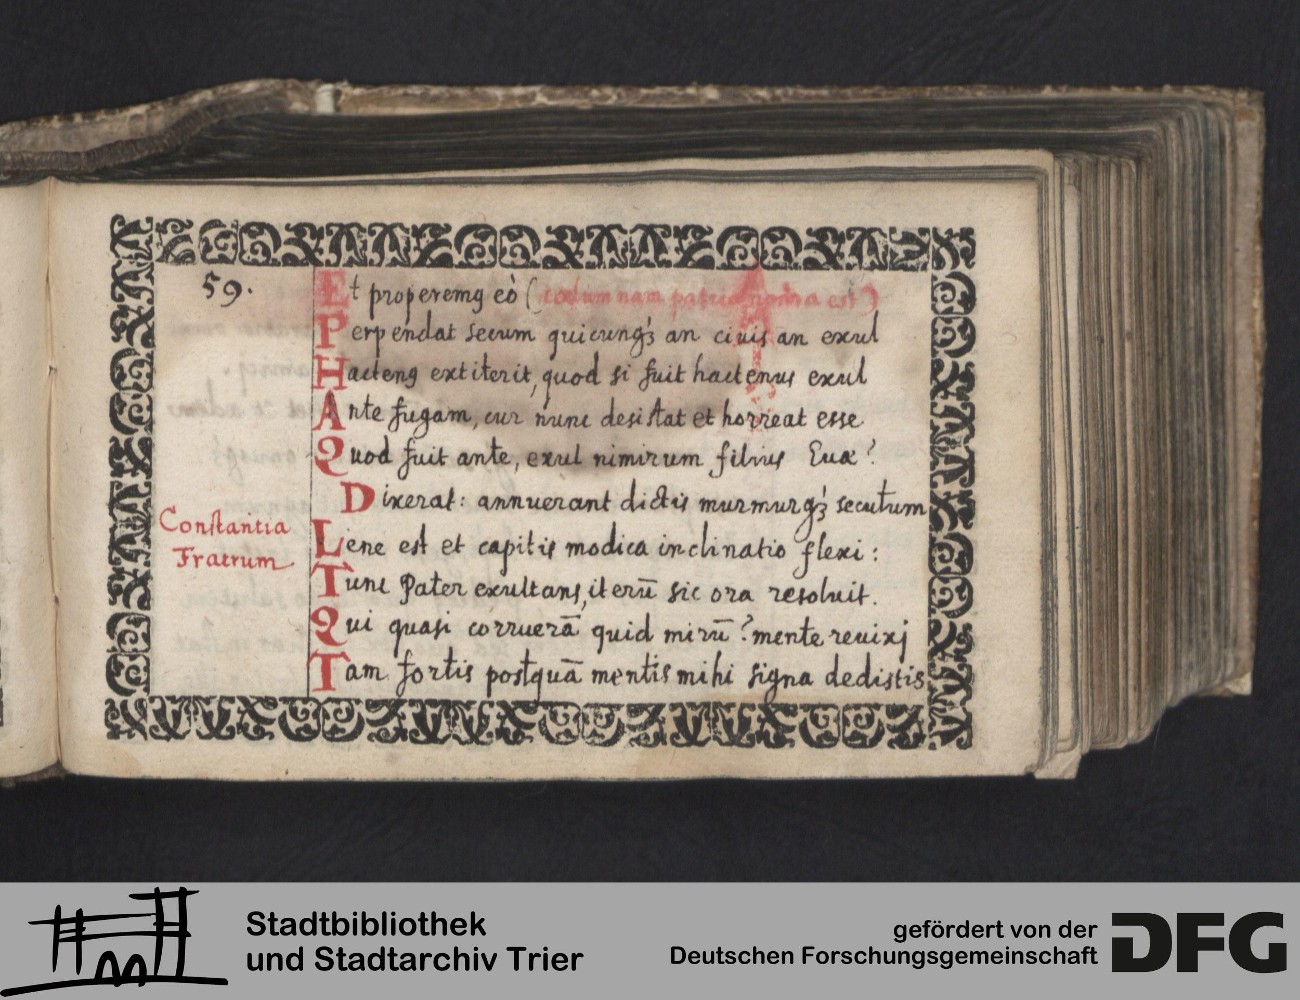 59.
Et properemꝰ eò (cœlum nam patria nostra est)
Perpendat secum quicunqꝫ an ciuis an exul
Hactenꝰ extiterit, quod si fuit hactenus exul
Ante fugam, cur nunc desistat et horreat esse
Quod fuit ante, exul nimirum filius Euæ?
Dixerat: annuerant dictis murmurqꝫ secutum
Constantia
Fratrum
Lene est et capitis modica inclinatio flexi:
Tunc Pater exultans, iterū sic ora resoluit.
Qui quasi corruerā quid mirū? mente reuixj
Tam fortis postquā mentis mihi signa dedistis
Stadtbibliothek
und Stadtarchiv Trier
gefördert von der
Deutschen Forschungsgemeinschaft
DFG